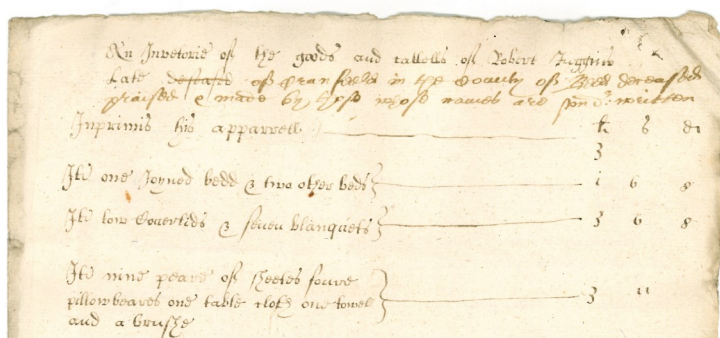 An Invetorie of the goods and cattells of Robert Juggins
Late deceased of Cranfield in the County of Bed deceased
praised & made by those whose names are written
Inprimis his apparrell li s d
3
Ite one Joyned bedd & two other beds 1 6 8
Ite tow Coverlids & seven blanquets 3 6 8
Ite nine peare of sheetes foure
pillowbeares one table cloth one towel 3
and a brushe